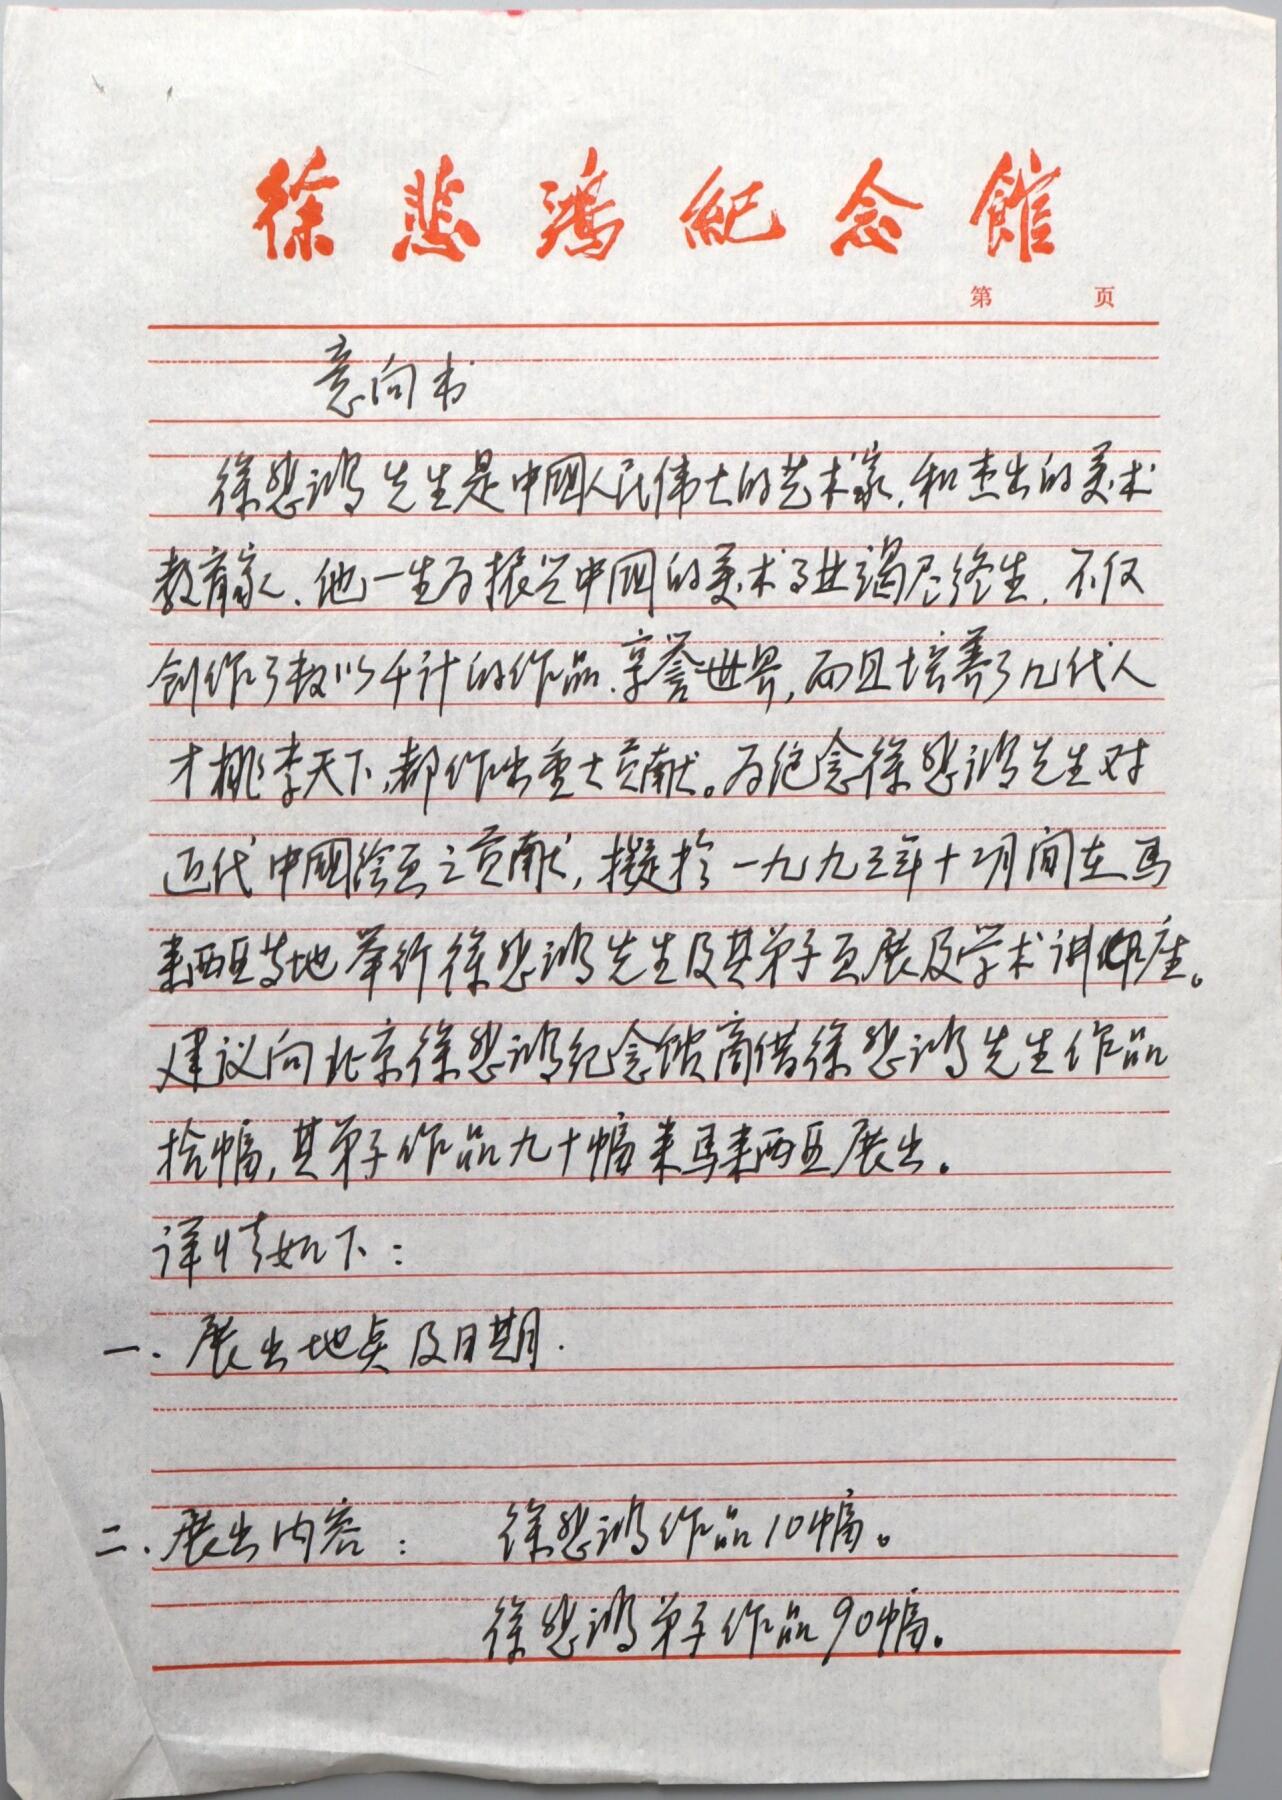 徐悲鸿紀念館
第 页
意向书
徐悲鸿先生是中國人民伟大的艺术家,和杰出的美术
教育家、他一生为振兴中国的美术事业竭尽终生,不仅
创作了数以千计的作品、享誉世界,而且培养了几代人
才桃李天下,都作出重大贡献。为纪念徐悲鸿先生对
近代中國绘画之贡献,擬於一九九三年十二月间在马
来西亚等地举行徐悲鸿先生及其弟子画展及学术讲座。
建议向北京徐悲鸿纪念馆商借徐悲鸿先生作品
拾幅,其弟子作品九十幅来马来西亚展出。
详情如下:
一、展出地点及日期.
二、展出内容: 徐悲鸿作品10幅。
徐悲鸿弟子作品90幅。